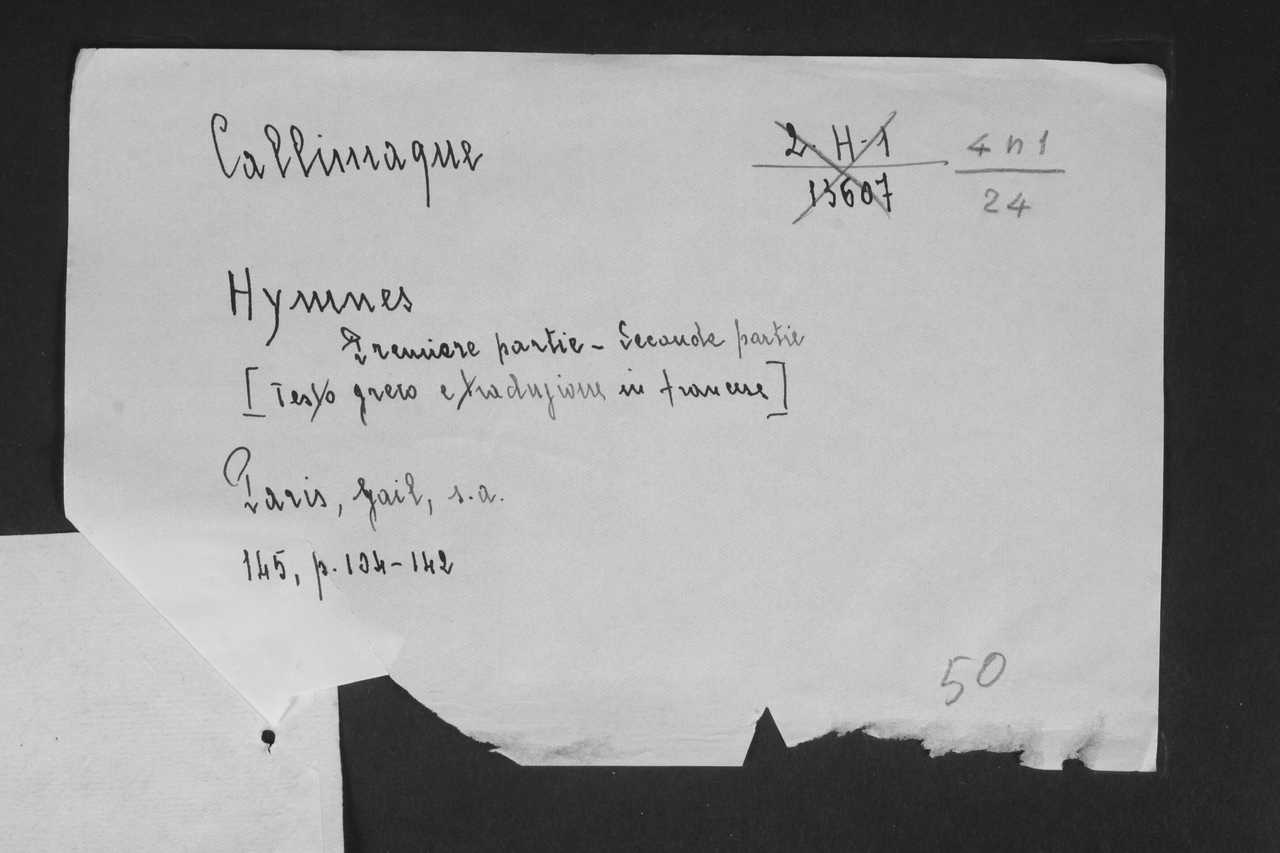 Callimaque
2. H-1
13607
4 n 1
24
Hymnes
Premiere partie - Seconde partie
[Testo greco e traduzione in francese]
Paris, Gail, s.a.
145, p. 134-142
50